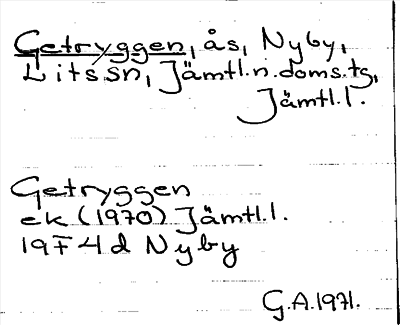 Getryggen, ås, Nyby,
Lits sn, Jämtl.n.doms.tg,
Jämtl.l.
Getryggen
ek (1970) Jämtl.l.
19F 4d Nyby
G.A.1971.